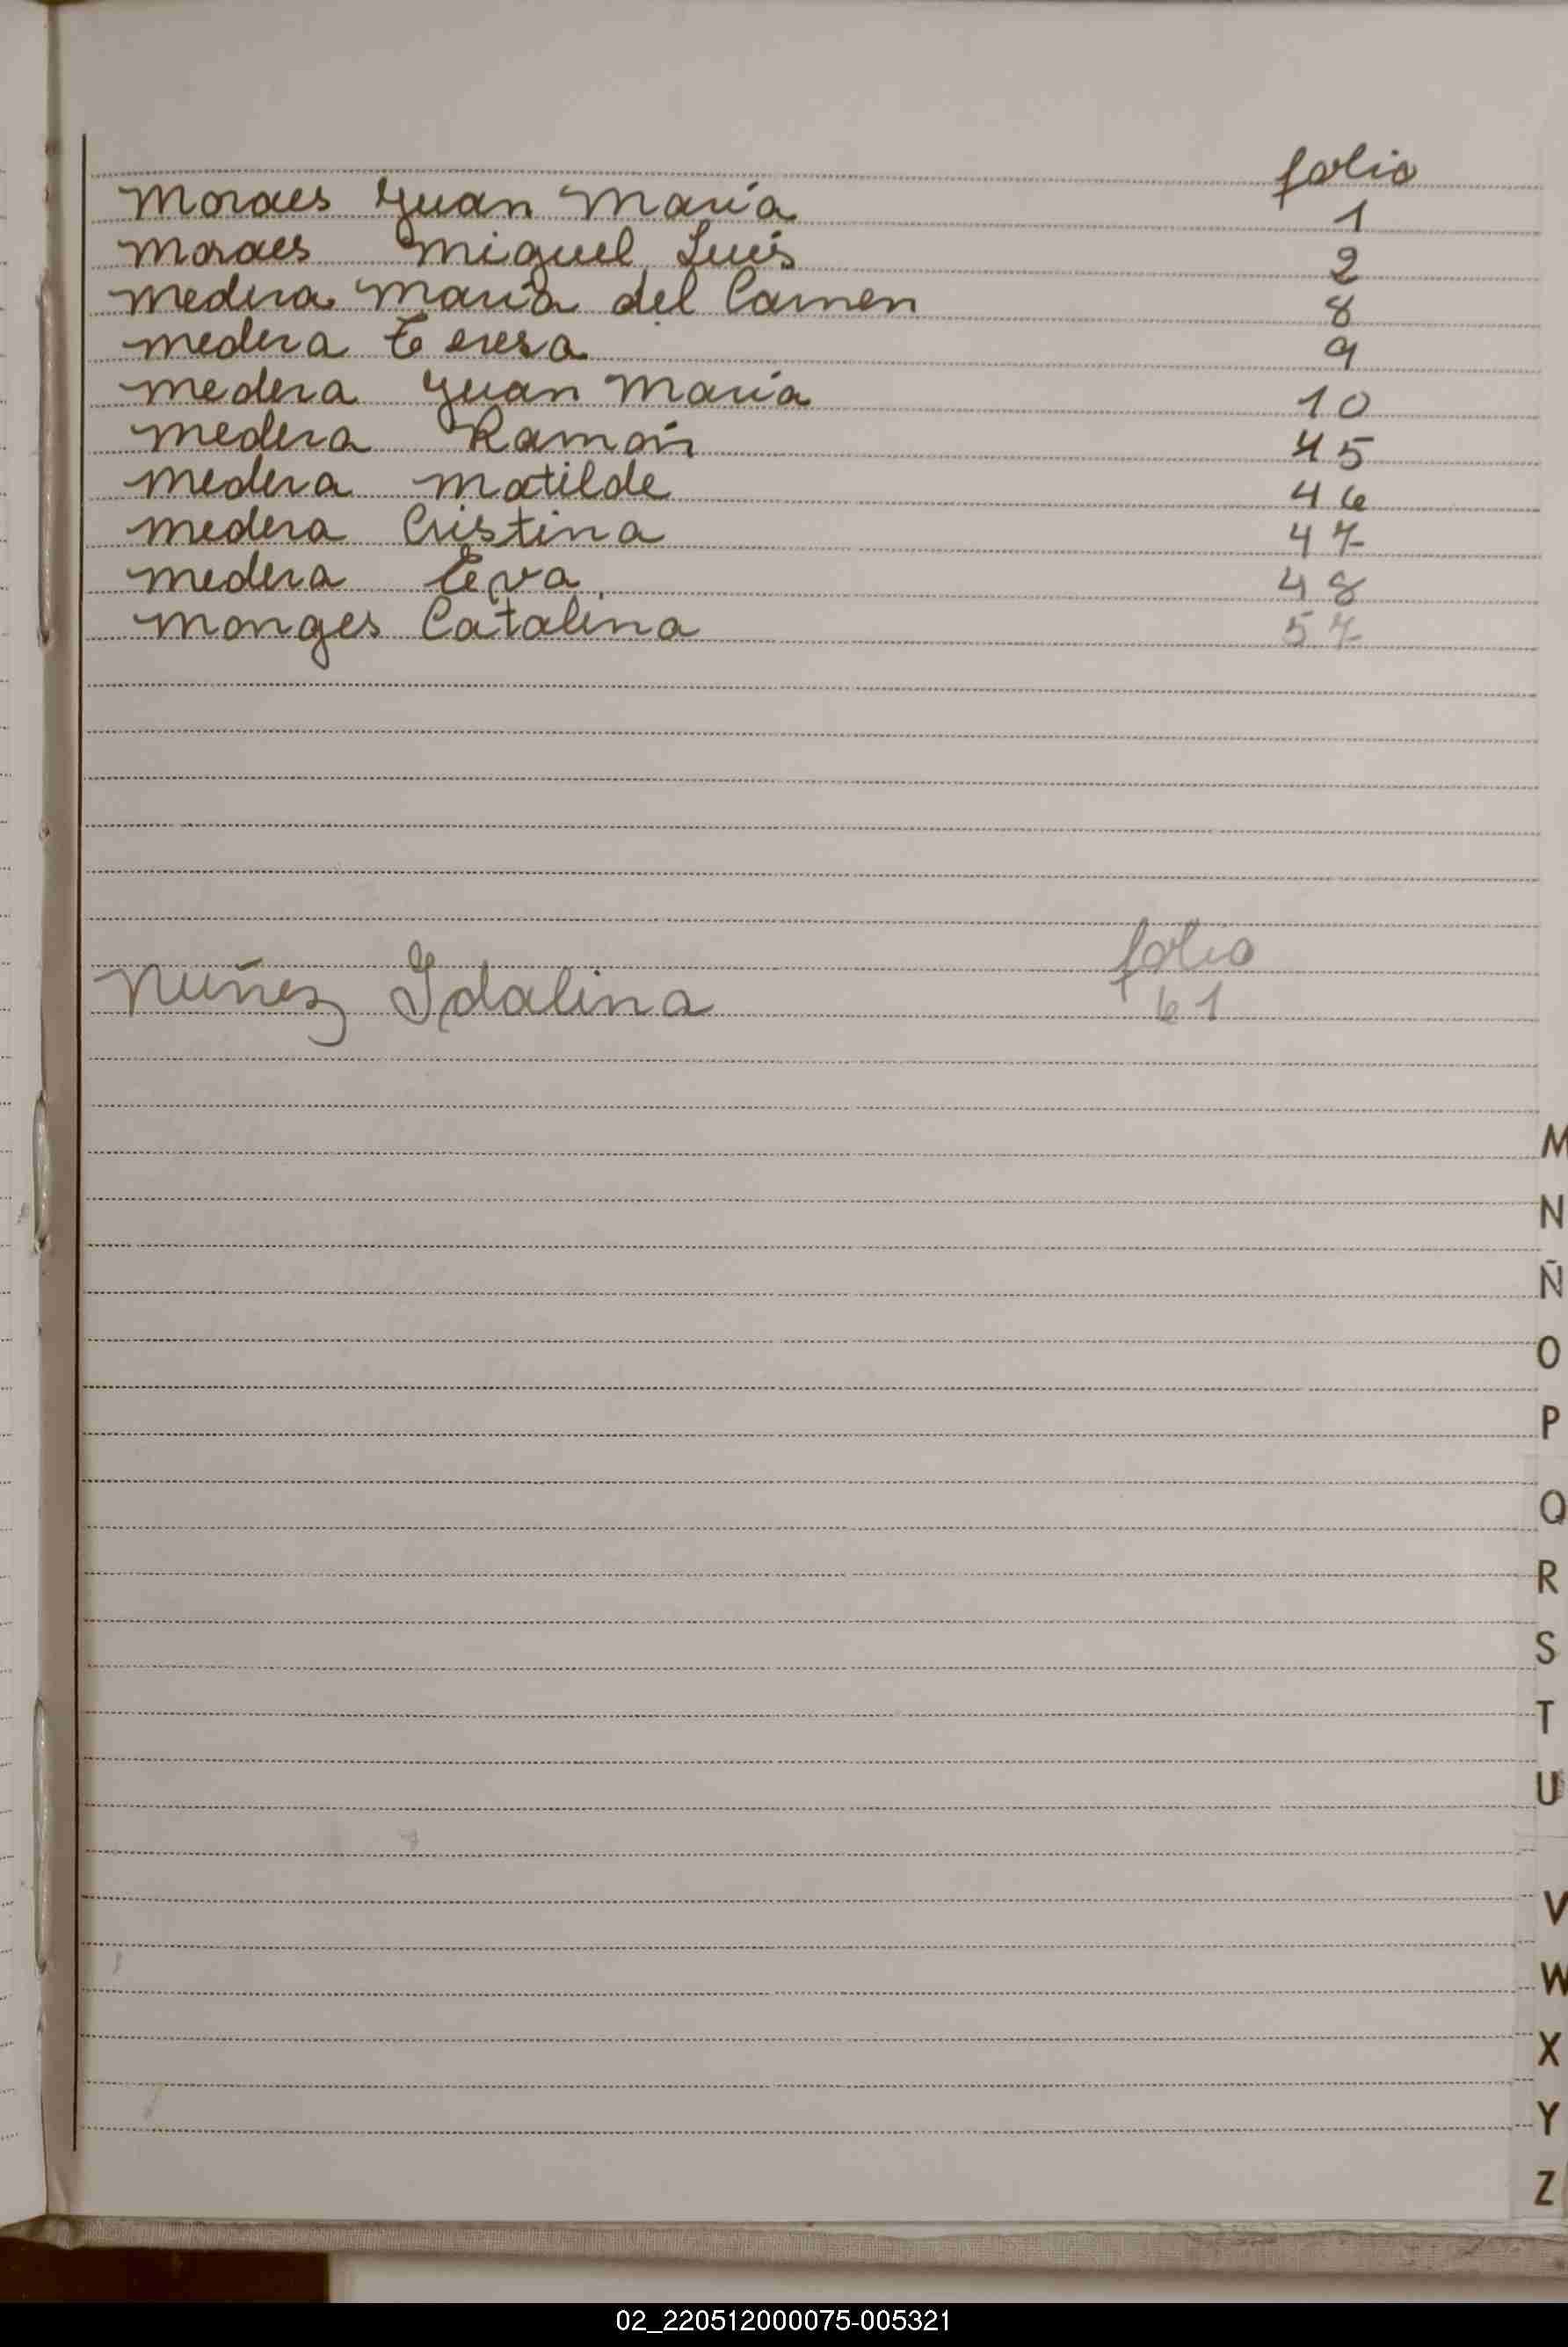 folio
Moraes Juan María 1
Moraes Miguel Luis 2
Medera María del Carmen 8
Medera Teresa 9
Medera Juan María 10
Medera Ramón 45
Medera Matilde 46
Medera Cristina 47
Medera Eva 48
Monges Catalina 57
folio
Nuñez Idalina 61
M
N
Ñ
O
P
Q
R
S
T
U
V
W
X
Y
Z
02_220512000075-005321